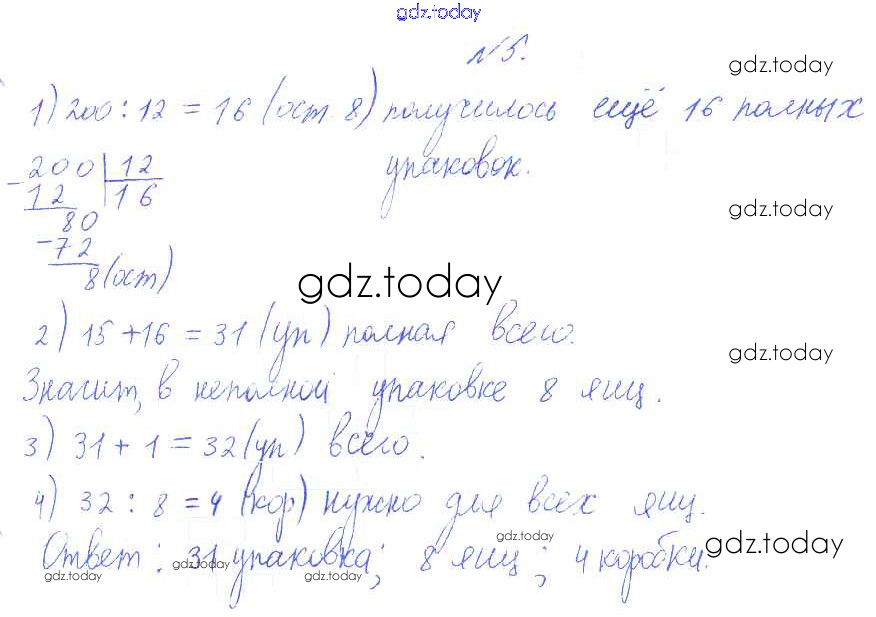 gdz.today
№5.
gdz.today
1) 200 : 12 = 16 (ост 8) получилось ещё 16 полных
упаковок.
-200 | 12
12 | 16
80
-72
8 (ост)
gdz.today
gdz.today
2) 15 + 16 = 31 (уп) полная всего.
gdz.today
Значит, в неполной упаковке 8 яиц.
3) 31 + 1 = 32 (уп) всего.
4) 32 : 8 = 4 (кор) нужно для всех яиц.
Ответ: 31 упаковка; 8 яиц; 4 коробки.
gdz.today
gdz.today
gdz.today
gdz.today
gdz.today